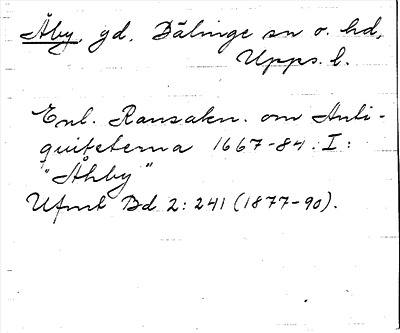 Åby, gd, Bälinge sn o. hd,
Upps. l.
Enl. Ransakn. om Anti-
quiteterna 1667-84. I:
"Åhby"
Ufmt Bd 2: 241 (1877-90).